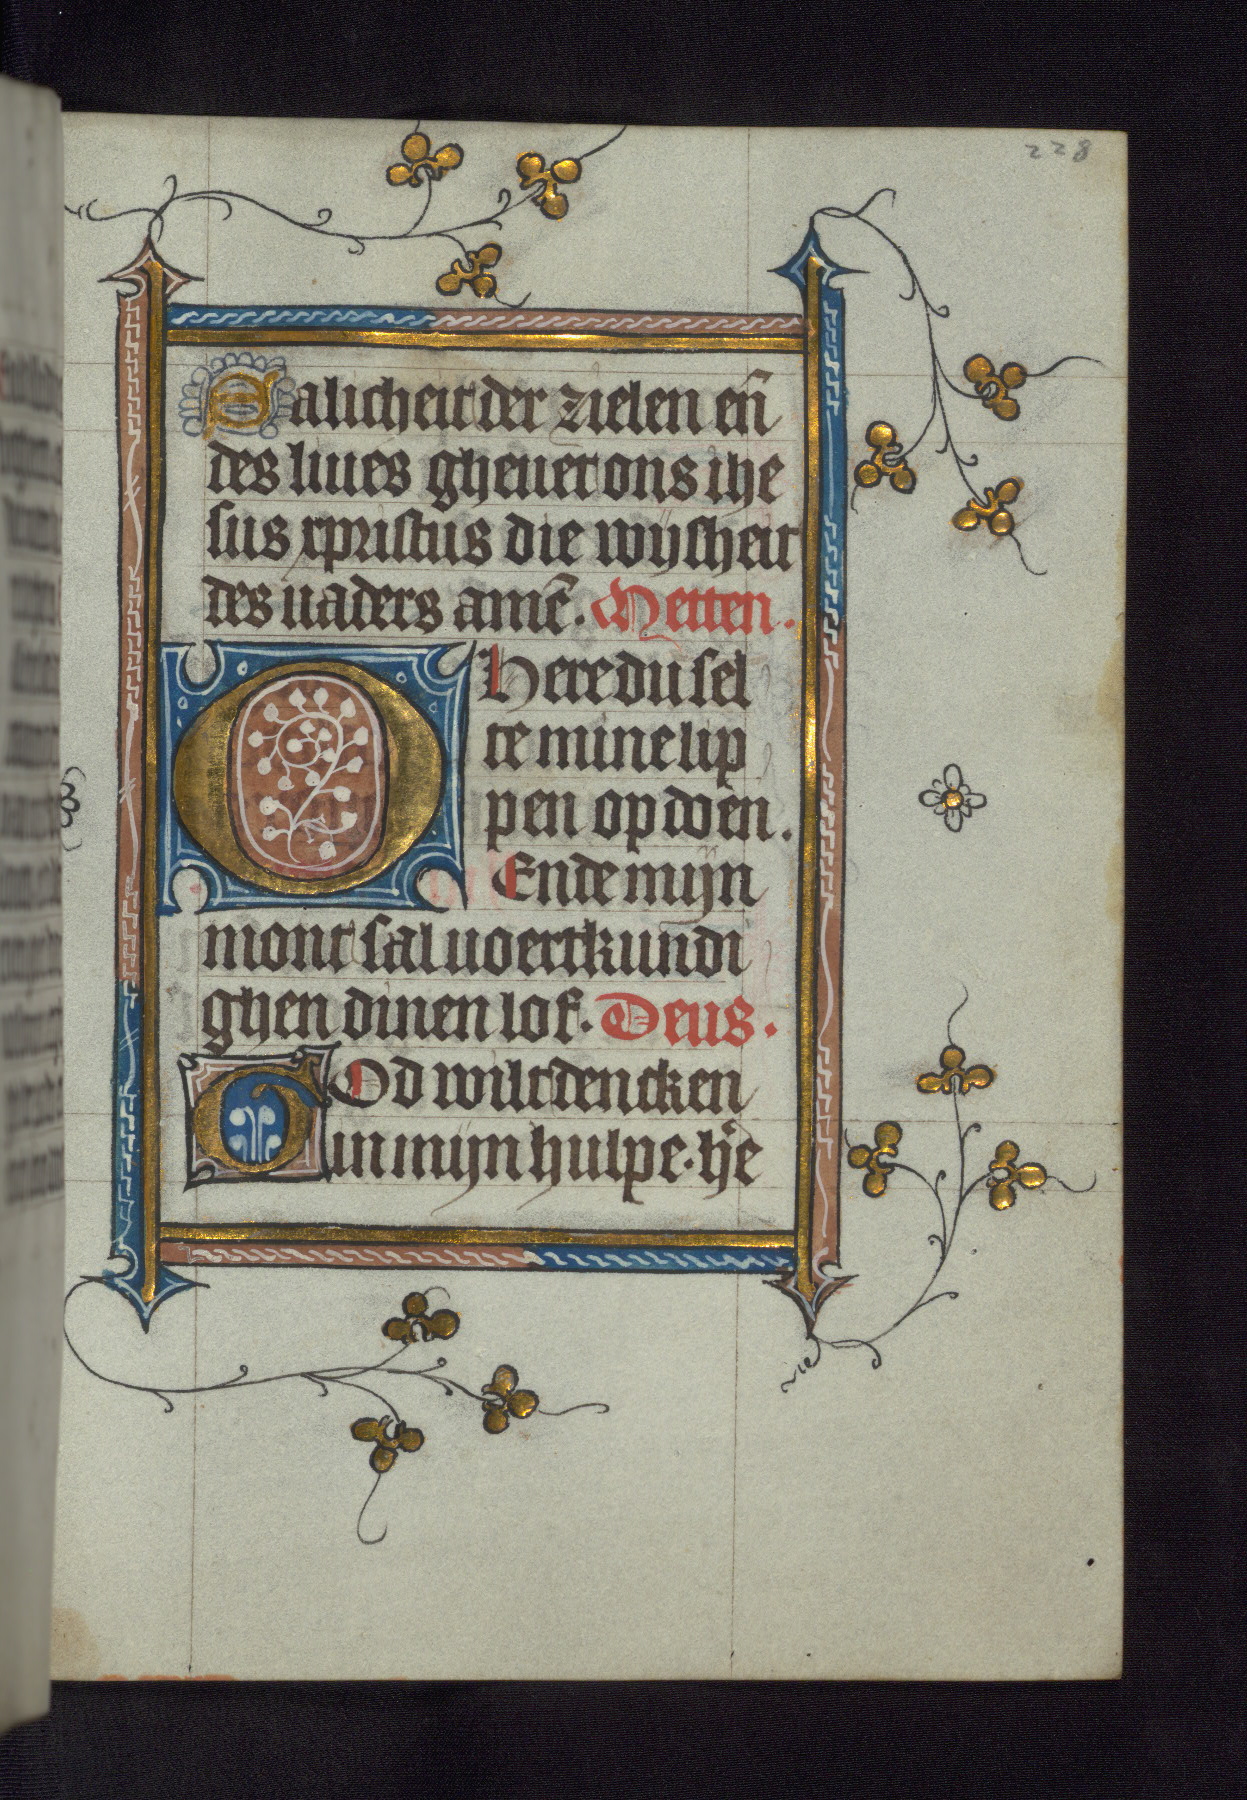 228
Salicheit der zielen en̄
des liues gheuet ons ihe
sus xpristus die wijsheit
des uaders amē. Metten.
O here du sel
te mine lip
pen op doen.
Ende mijn
mont sal uoertkundi
ghen dinen lof. Deus.
God wilt dencken
in mijn hulpe. h̄e